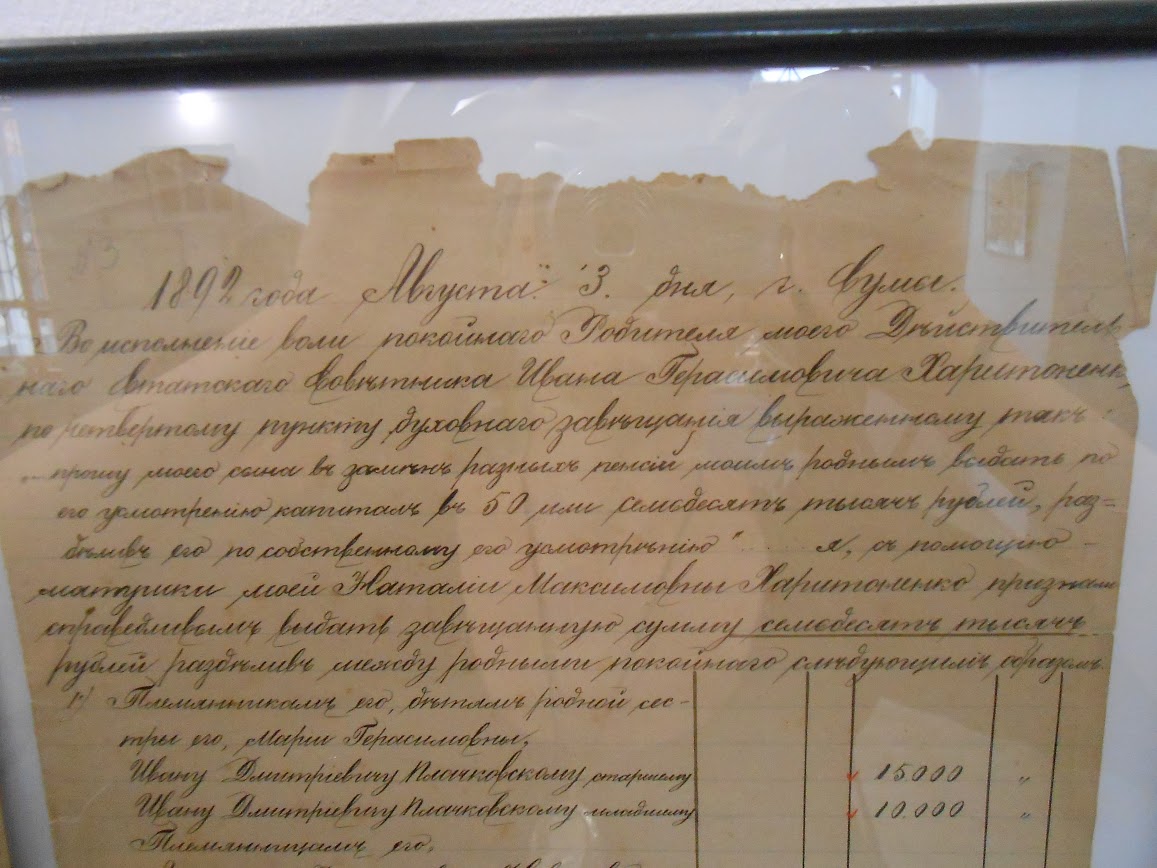 1892 года Августа 3. дня, г. Сумы.
Во исполненіе воли покойнаго Родителя моего Дѣйствитель
наго Статскаго Совѣтника Ивана Герасимовича Харитоненк
по четвертому пункту духовнаго завѣщанія выраженному такъ:
"...прошу моего сына въ замѣнъ разныхъ пенсій моимъ роднымъ выдать по
его усмотрѣнію капиталъ въ 50 или семьдесятъ тысячъ рублей, раз-
дѣливъ его по собственному его усмотрѣнію" ..... я, съ помощію
матушки моей Наталіи Максимовны Харитоненко призналъ
справедливымъ выдать завѣщанную сумму семьдесятъ тысячъ
рублей раздѣливъ между родными покойнаго слѣдующимъ образомъ
1) Племянникамъ его, дѣтямъ родной сес-
тры его, Маріи Герасимовны,
Ивану Дмитріевичу Плачковскому старшему 15000 "
Ивану Дмитріевичу Плачковскому младшему 10.000 "
Племянницамъ его,